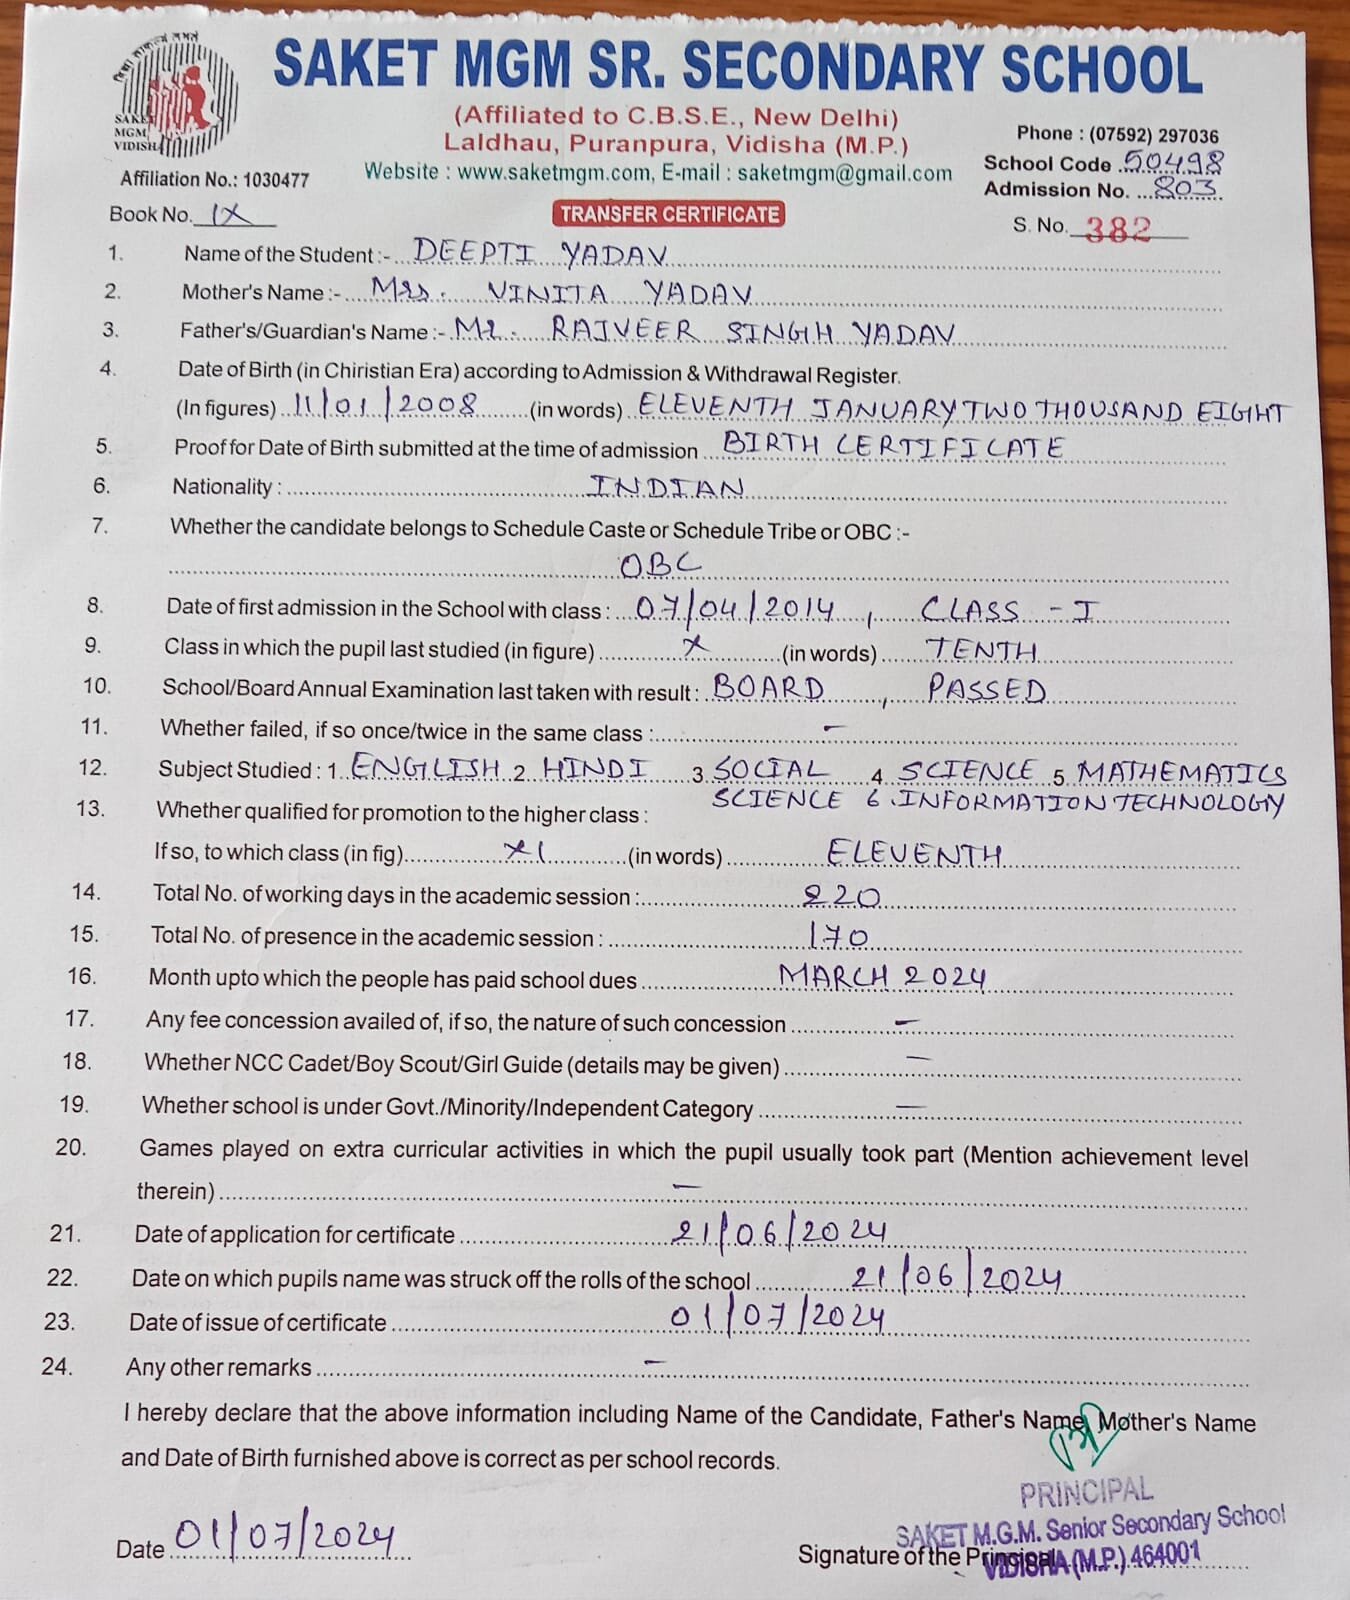 SAKET MGM VIDISHA
SAKET MGM SR. SECONDARY SCHOOL
(Affiliated to C.B.S.E., New Delhi)
Laldhau, Puranpura, Vidisha (M.P.)
Website : www.saketmgm.com, E-mail : saketmgm@gmail.com
Phone : (07592) 297036
School Code 50498
Admission No. 803
Affiliation No.: 1030477
Book No. IX
TRANSFER CERTIFICATE
S. No. 382
1. Name of the Student :- DEEPTI YADAV
2. Mother's Name :- Mrs. VINITA YADAV
3. Father's/Guardian's Name :- Mr. RAJVEER SINGH YADAV
4. Date of Birth (in Chiristian Era) according to Admission & Withdrawal Register.
(In figures) 11/01/2008 (in words) ELEVENTH JANUARY TWO THOUSAND EIGHT
5. Proof for Date of Birth submitted at the time of admission BIRTH CERTIFICATE
6. Nationality : INDIAN
7. Whether the candidate belongs to Schedule Caste or Schedule Tribe or OBC :-
OBC
8. Date of first admission in the School with class : 07/04/2014, CLASS - I
9. Class in which the pupil last studied (in figure) X (in words) TENTH
10. School/Board Annual Examination last taken with result : BOARD, PASSED
11. Whether failed, if so once/twice in the same class : -
12. Subject Studied : 1. ENGLISH 2. HINDI 3. SOCIAL 4. SCIENCE 5. MATHEMATICS
SCIENCE 6. INFORMATION TECHNOLOGY
13. Whether qualified for promotion to the higher class :
If so, to which class (in fig) XI (in words) ELEVENTH
14. Total No. of working days in the academic session : 220
15. Total No. of presence in the academic session : 170
16. Month upto which the people has paid school dues MARCH 2024
17. Any fee concession availed of, if so, the nature of such concession -
18. Whether NCC Cadet/Boy Scout/Girl Guide (details may be given) -
19. Whether school is under Govt./Minority/Independent Category -
20. Games played on extra curricular activities in which the pupil usually took part (Mention achievement level
therein) -
21. Date of application for certificate 21/06/2024
22. Date on which pupils name was struck off the rolls of the school 21/06/2024
23. Date of issue of certificate 01/07/2024
24. Any other remarks -
I hereby declare that the above information including Name of the Candidate, Father's Name, Mother's Name
and Date of Birth furnished above is correct as per school records.
PRINCIPAL
SAKET M.G.M. Senior Secondary School
VIDISHA (M.P.) 464001
Date 01/07/2024
Signature of the Principal